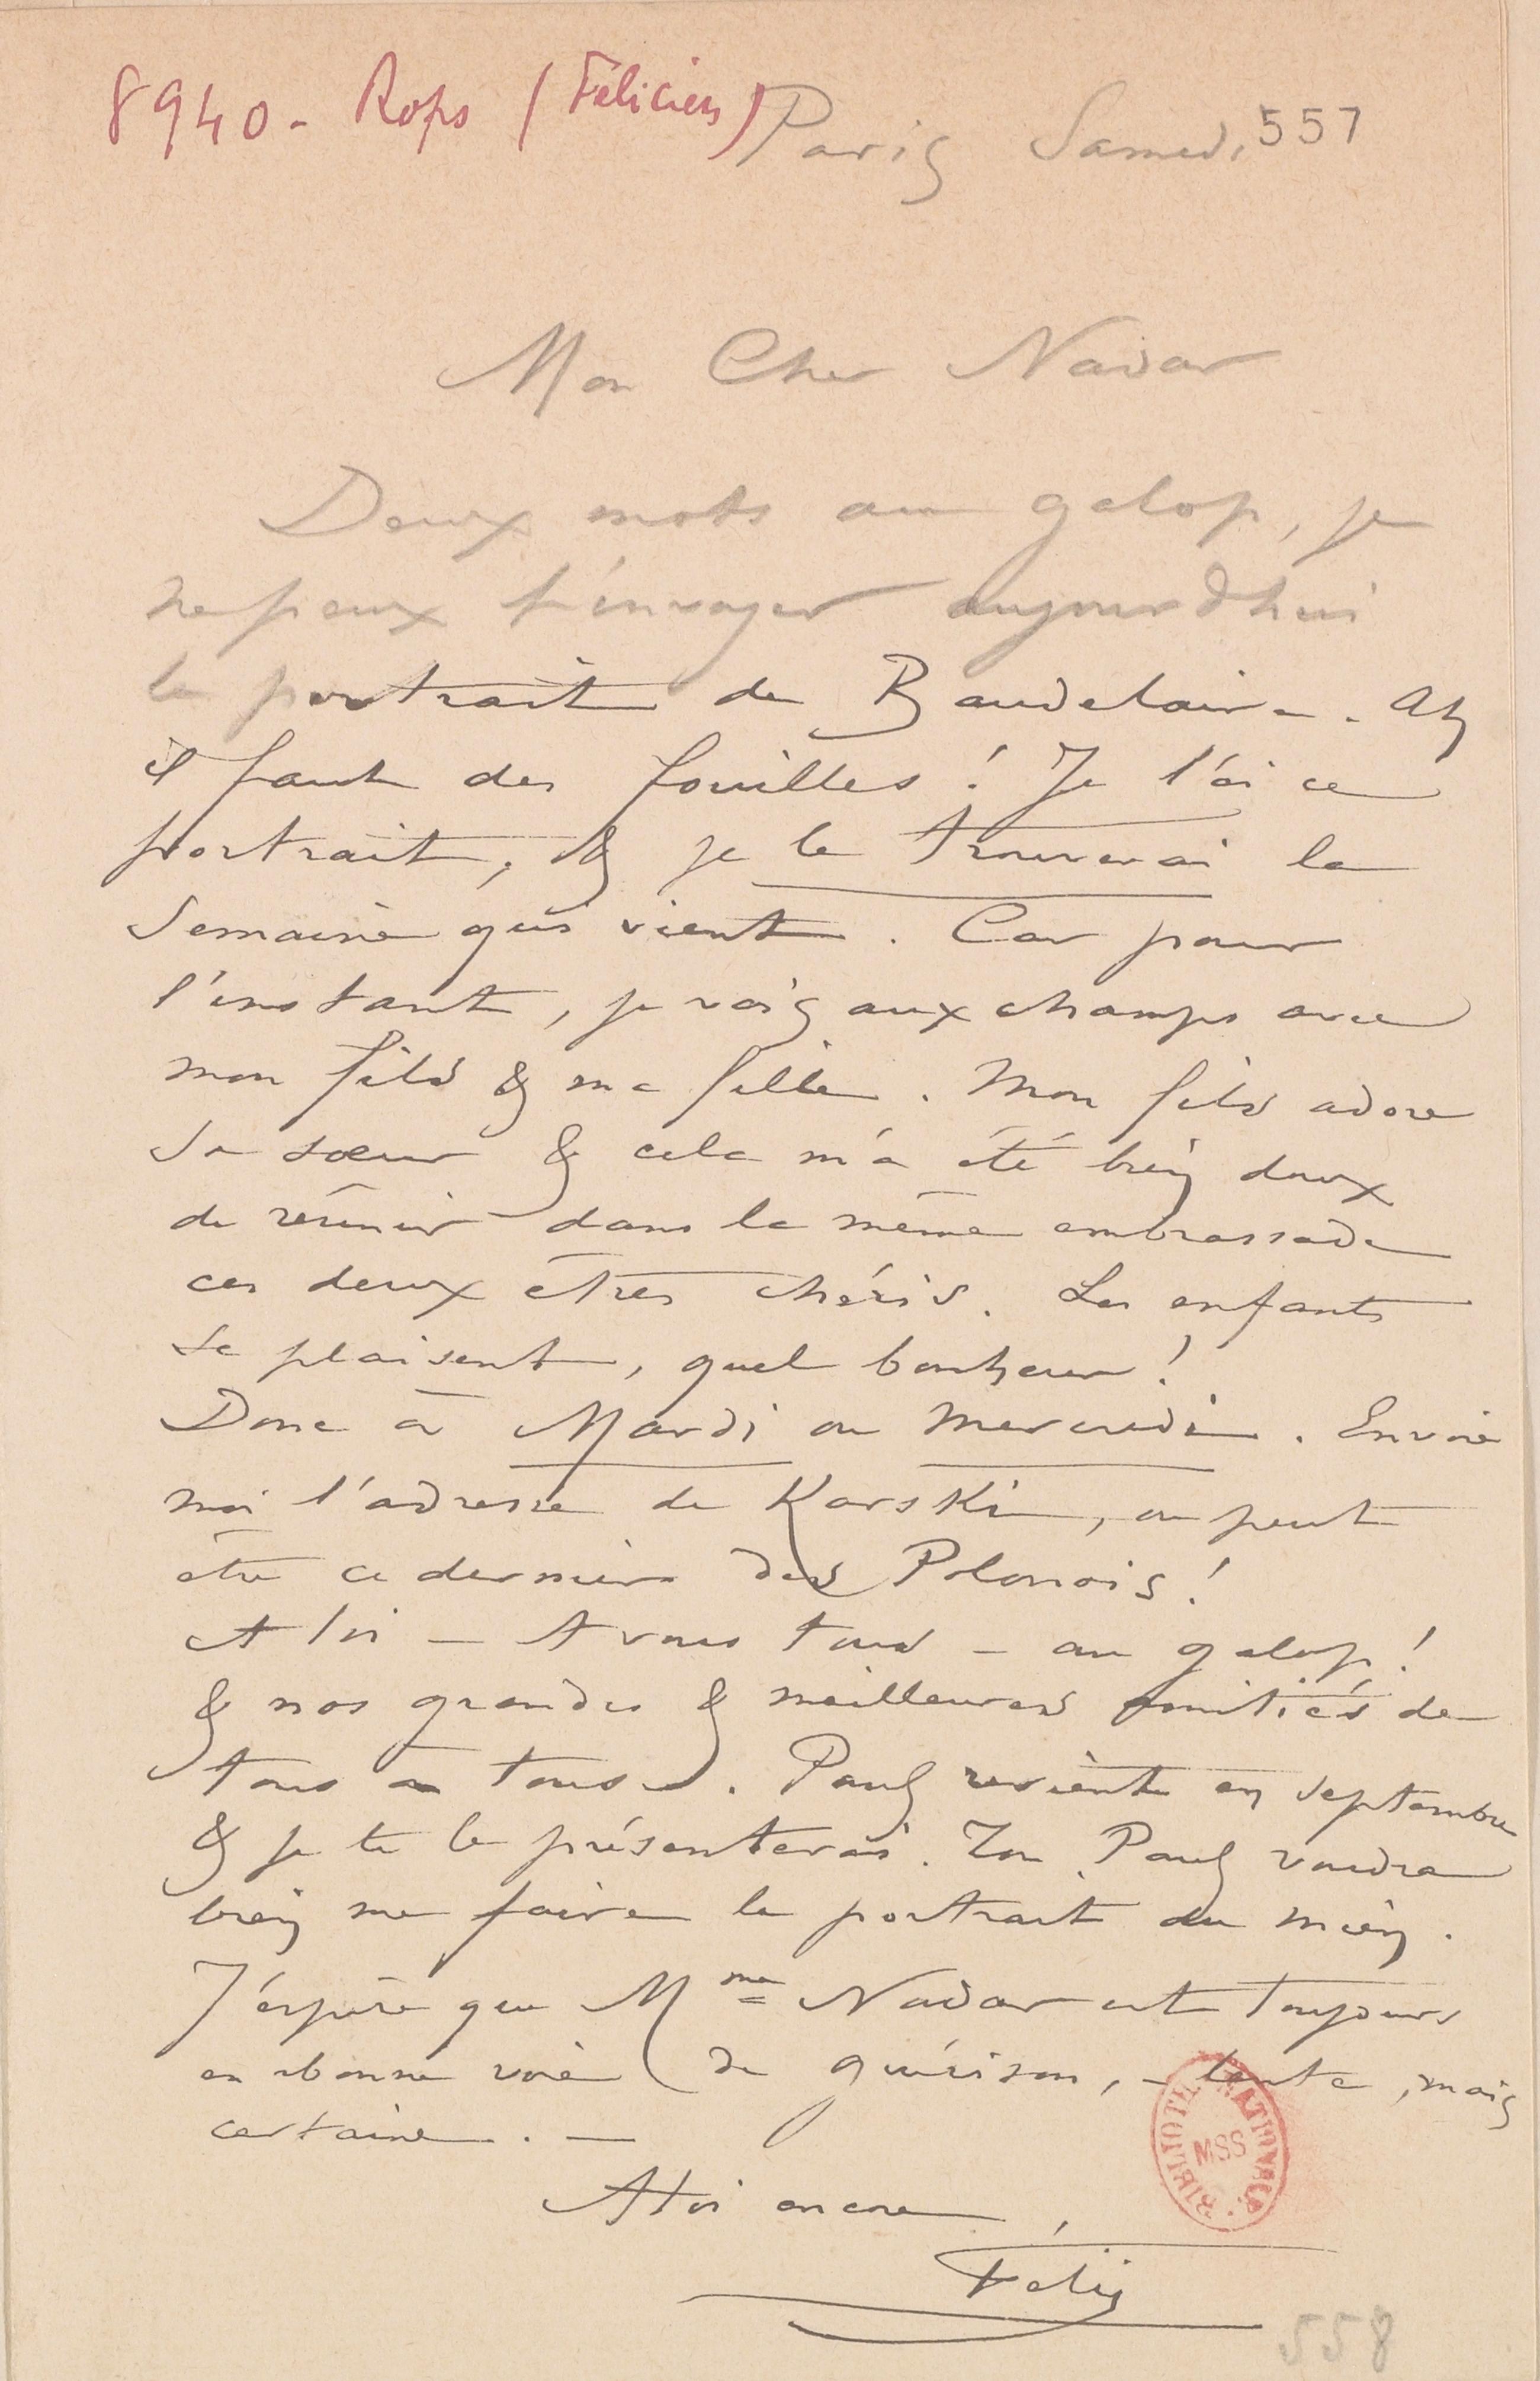 8940 - Rops (Félicien)
Paris Samedi 557
Mon Cher Nadar
Deux mots au galop, je
ne peux t'envoyer aujourd'hui
le portrait de Baudelaire. Ah
il faut des fouilles ! Je l'ai ce
portrait, & je le trouverai la
semaine qui vient. Car pour
l'instant, je vais aux champs avec
mon fils & ma fille. Mon fils adore
sa sœur & cela m'a été bien doux
de réunir dans la même embrassade
ces deux êtres chéris. Les enfants
se plaisent, quel bonheur !
Donc à Mardi ou Mercredi. Envoie
moi l'adresse de Karski, ou peut
être ce dernier des Polonais !
A toi – A vous tous – au galop !
& nos grandes & meilleures amitiés de
tous à tous. Paul revient en septembre
& je te le présenterai. Ton Paul voudra
bien me faire le portrait du mien.
J'espère que Mme Nadar est toujours
en bonne voie de guérison, – lente, mais
certaine. –
A toi encore,
Féli
BIBLIOTH. NATIONALE
MSS
558